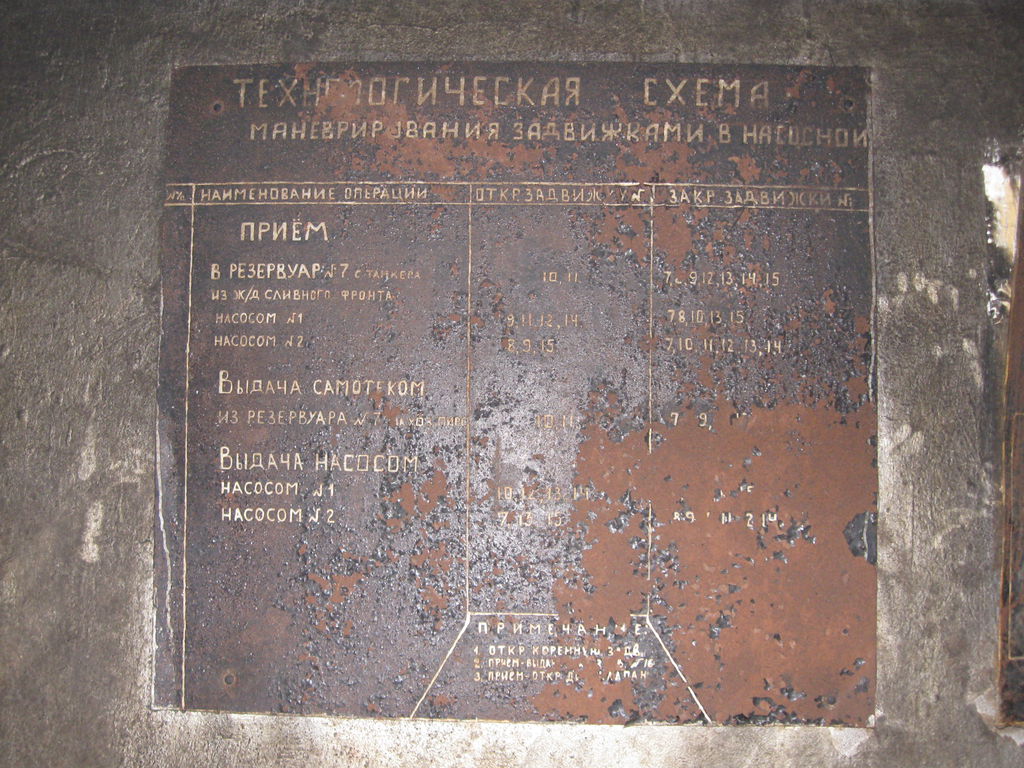 ТЕХНОЛОГИЧЕСКАЯ СХЕМА
МАНЕВРИРОВАНИЯ ЗАДВИЖКАМИ В НАСОСНОЙ
№№ НАИМЕНОВАНИЕ ОПЕРАЦИИ ОТКР. ЗАДВИЖКУ № ЗАКР. ЗАДВИЖКИ №
ПРИЁМ
В РЕЗЕРВУАР №7 С ТАНКЕРА 10, 11 7, 8, 9, 12, 13, 14, 15
ИЗ Ж/Д СЛИВНОГО ФРОНТА
НАСОСОМ №1 9, 11, 12, 14 7 8, 10, 13, 15
НАСОСОМ №2 8, 9, 15 7, 10, 11, 12, 13, 14
ВЫДАЧА САМОТЕКОМ
ИЗ РЕЗЕРВУАРА №7 10, 11 7 9,
ВЫДАЧА НАСОСОМ
НАСОСОМ №1 10, 12, 13, 14
НАСОСОМ №2 7, 13, 15 8, 9
ПРИМЕЧАНИЕ.
1. ОТКР. КОРЕННУЮ ЗАДВ.
2. ПРИЕМ-ВЫДА №16
3. ПРИЕМ-ОТКР.